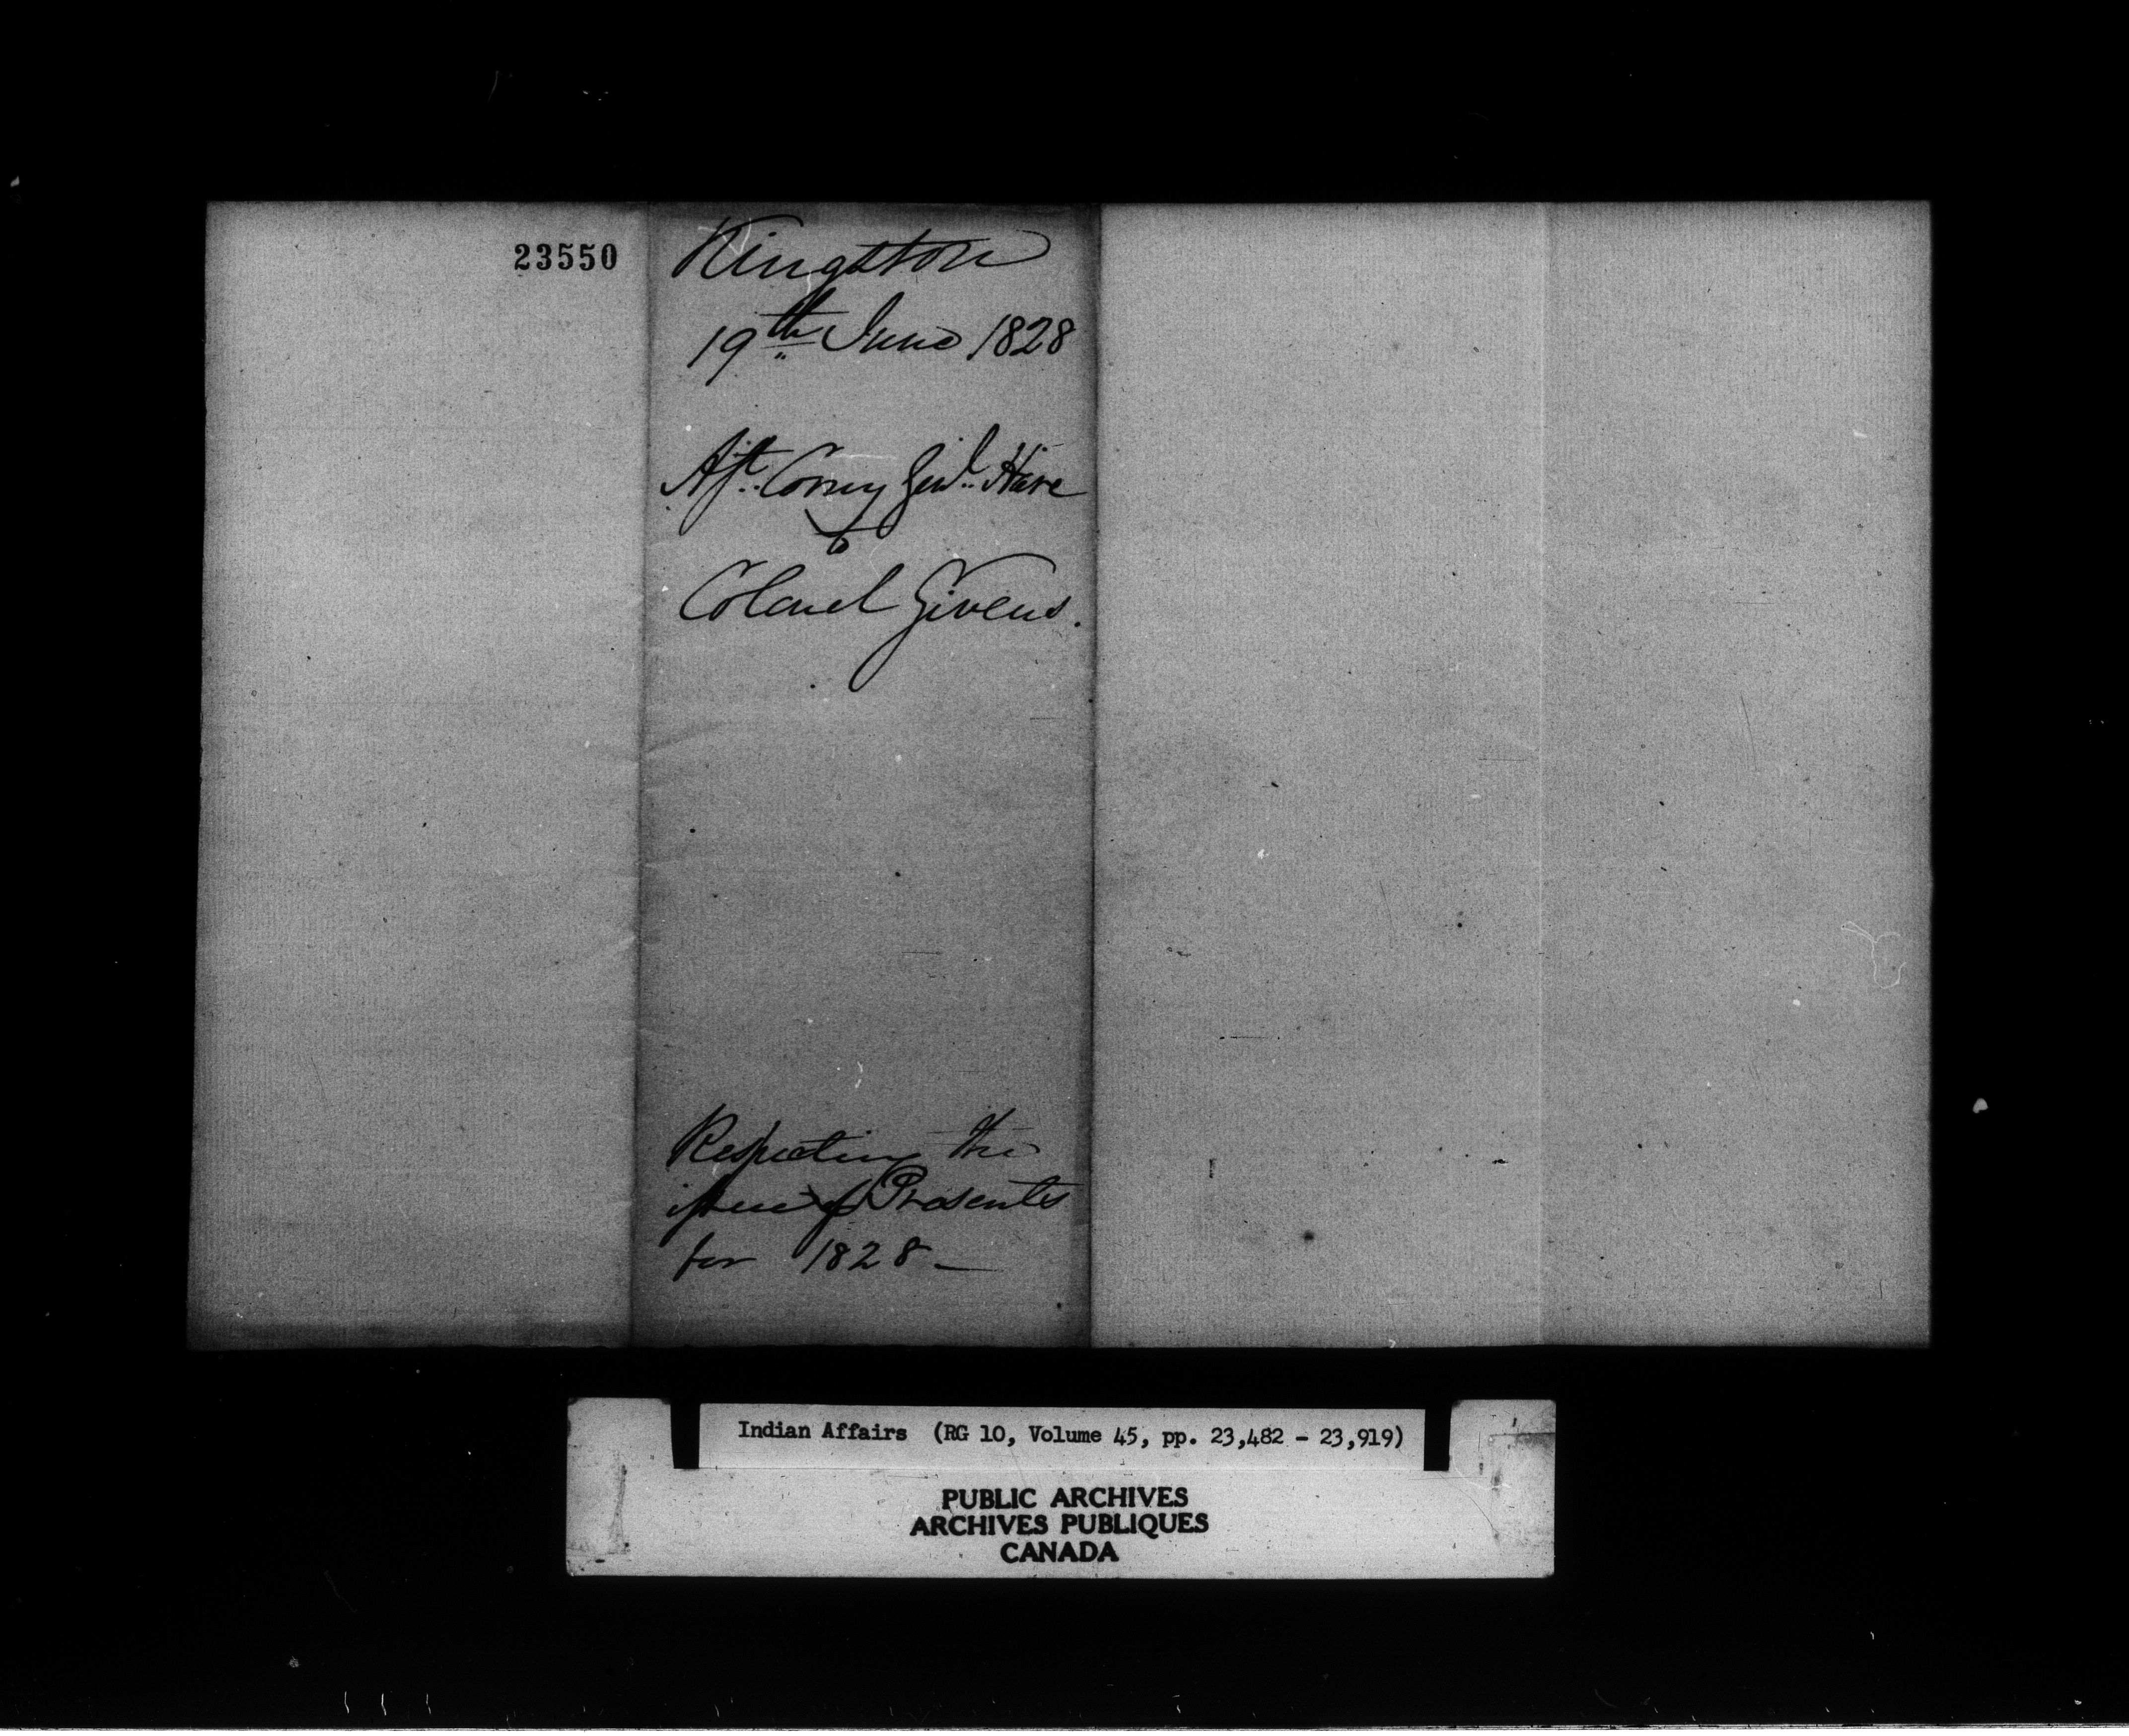 23550
Kingston
19th June 1828
Asst. Comy Genl. Hare
to
Colonel Givens.
Respecting the
issue of Presents
for 1828 —
Indian Affairs (RG 10, Volume 45, pp. 23,482 - 23,919)
PUBLIC ARCHIVES
ARCHIVES PUBLIQUES
CANADA